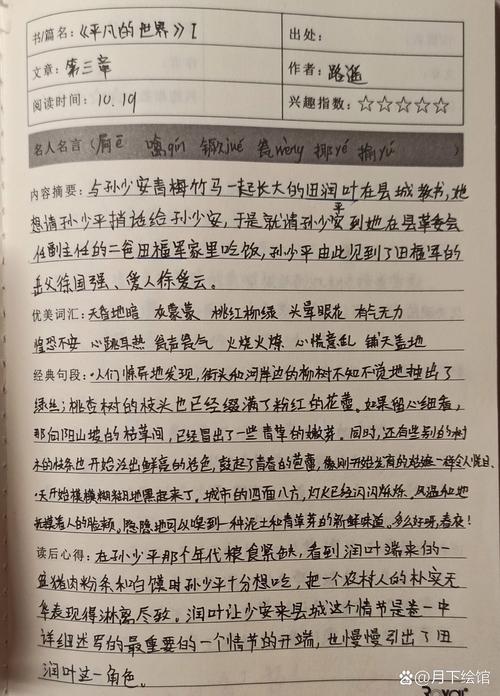 书/篇名：《平凡的世界》I
出处：
文章：第三章
作者：路遥
阅读时间：10.19
兴趣指数：☆☆☆☆☆
名人名言（屙ē 噙qín 镢jué 瓮wèng 揶yé 揄yú ）
内容摘要：与孙少安青梅竹马一起长大的田润叶在县城教书，她
想请孙少平捎话给孙少安，于是就请孙少平到她在县革委会
任副主任的二爸田福军家里吃饭，孙少平由此见到了田福军的
岳父徐国强、爱人徐爱云。
优美词汇：天昏地暗 灰蒙蒙 桃红柳绿 头晕眼花 有气无力
惶恐不安 心跳耳热 瓮声瓮气 火烧火燎 心慌意乱 铺天盖地
经典句段：·人们惊异地发现，街头和河岸边的柳树不知不觉地抽出了
绿丝；桃杏树的枝头也已经缀满了粉红的花蕾。如果留心细看，
那向阳山坡的枯草间，已经冒出了一些青草的嫩芽。同时，还有些别的树
木的枝条也开始泛出鲜亮的活色，鼓起了青春的苞蕾，像刚开始发育的姑娘一样令人悦目。
·天开始模模糊糊地黑起来了。城市的四面八方，灯火已经闪闪烁烁。风温和地
抚摸着人的脸颊。隐隐地可以嗅到一种泥土和青草芽的新鲜味道。多么好呀，春夜！
读后心得：在孙少平那个年代粮食紧缺，看到润叶端来的一
盆猪肉粉条和白馍时孙少平十分想吃，把一个农村人的朴实无
华表现得淋漓尽致。润叶让少安来县城这个情节是卷一中
详细述写的最重要的一个情节的开端，也慢慢引出了田
润叶这一角色。
头条 @月下绘馆